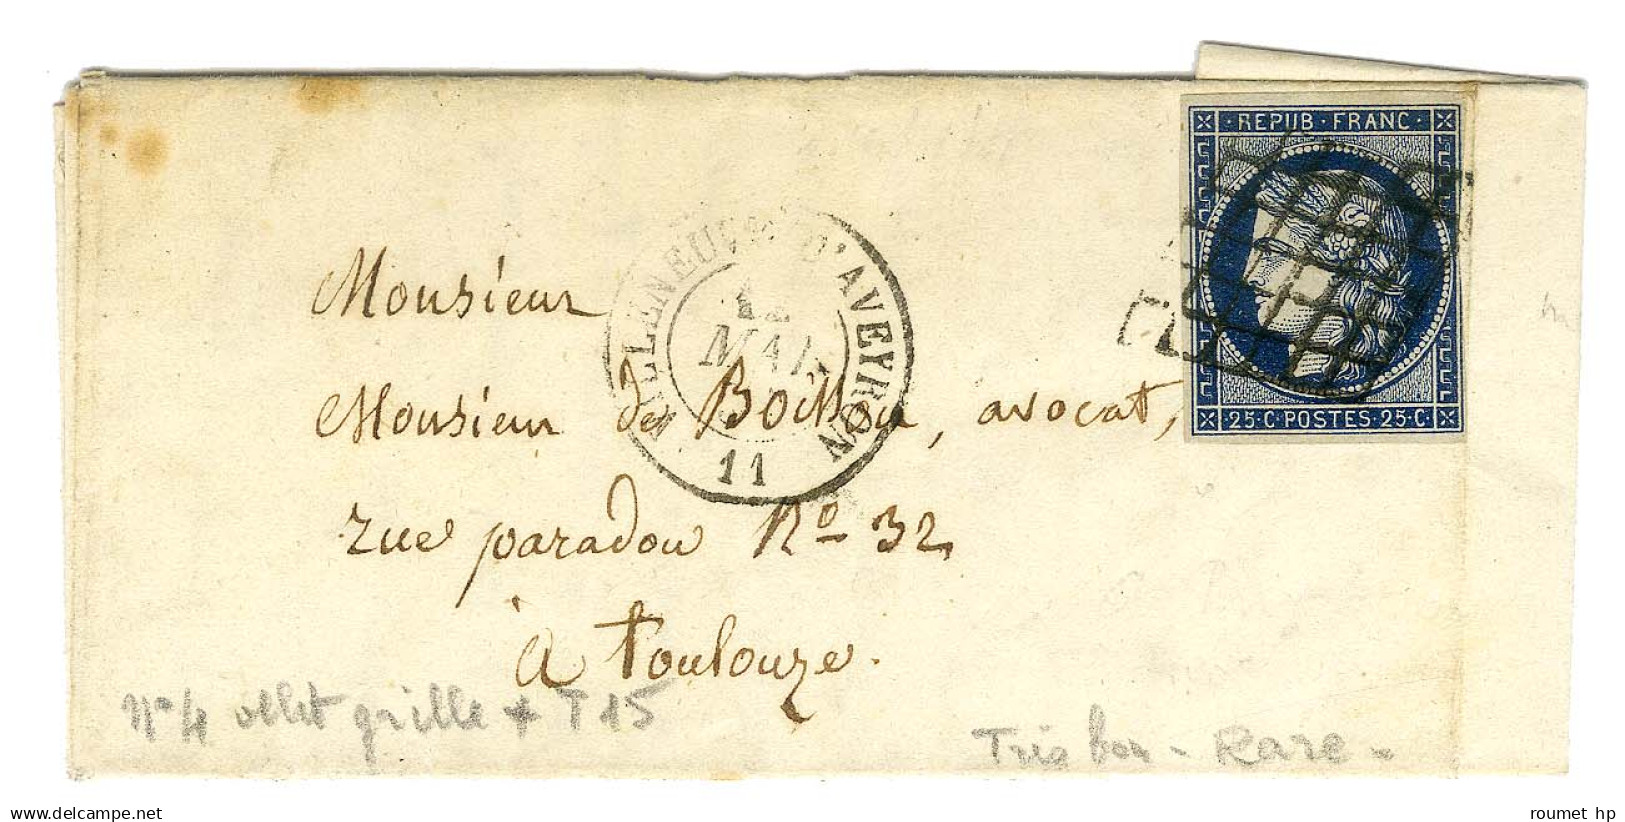 REPUB · FRANC ·
VILLENEUVE D'AVEYRON
12
MAI
11
25 · C · POSTES · 25 · C ·
Monsieur
Monsieur de avocat,
rue paradou No 32
à toulouze.
No 4 oblit grille + T15
Très bon - Rare -
www.delcampe.net
roumet hp